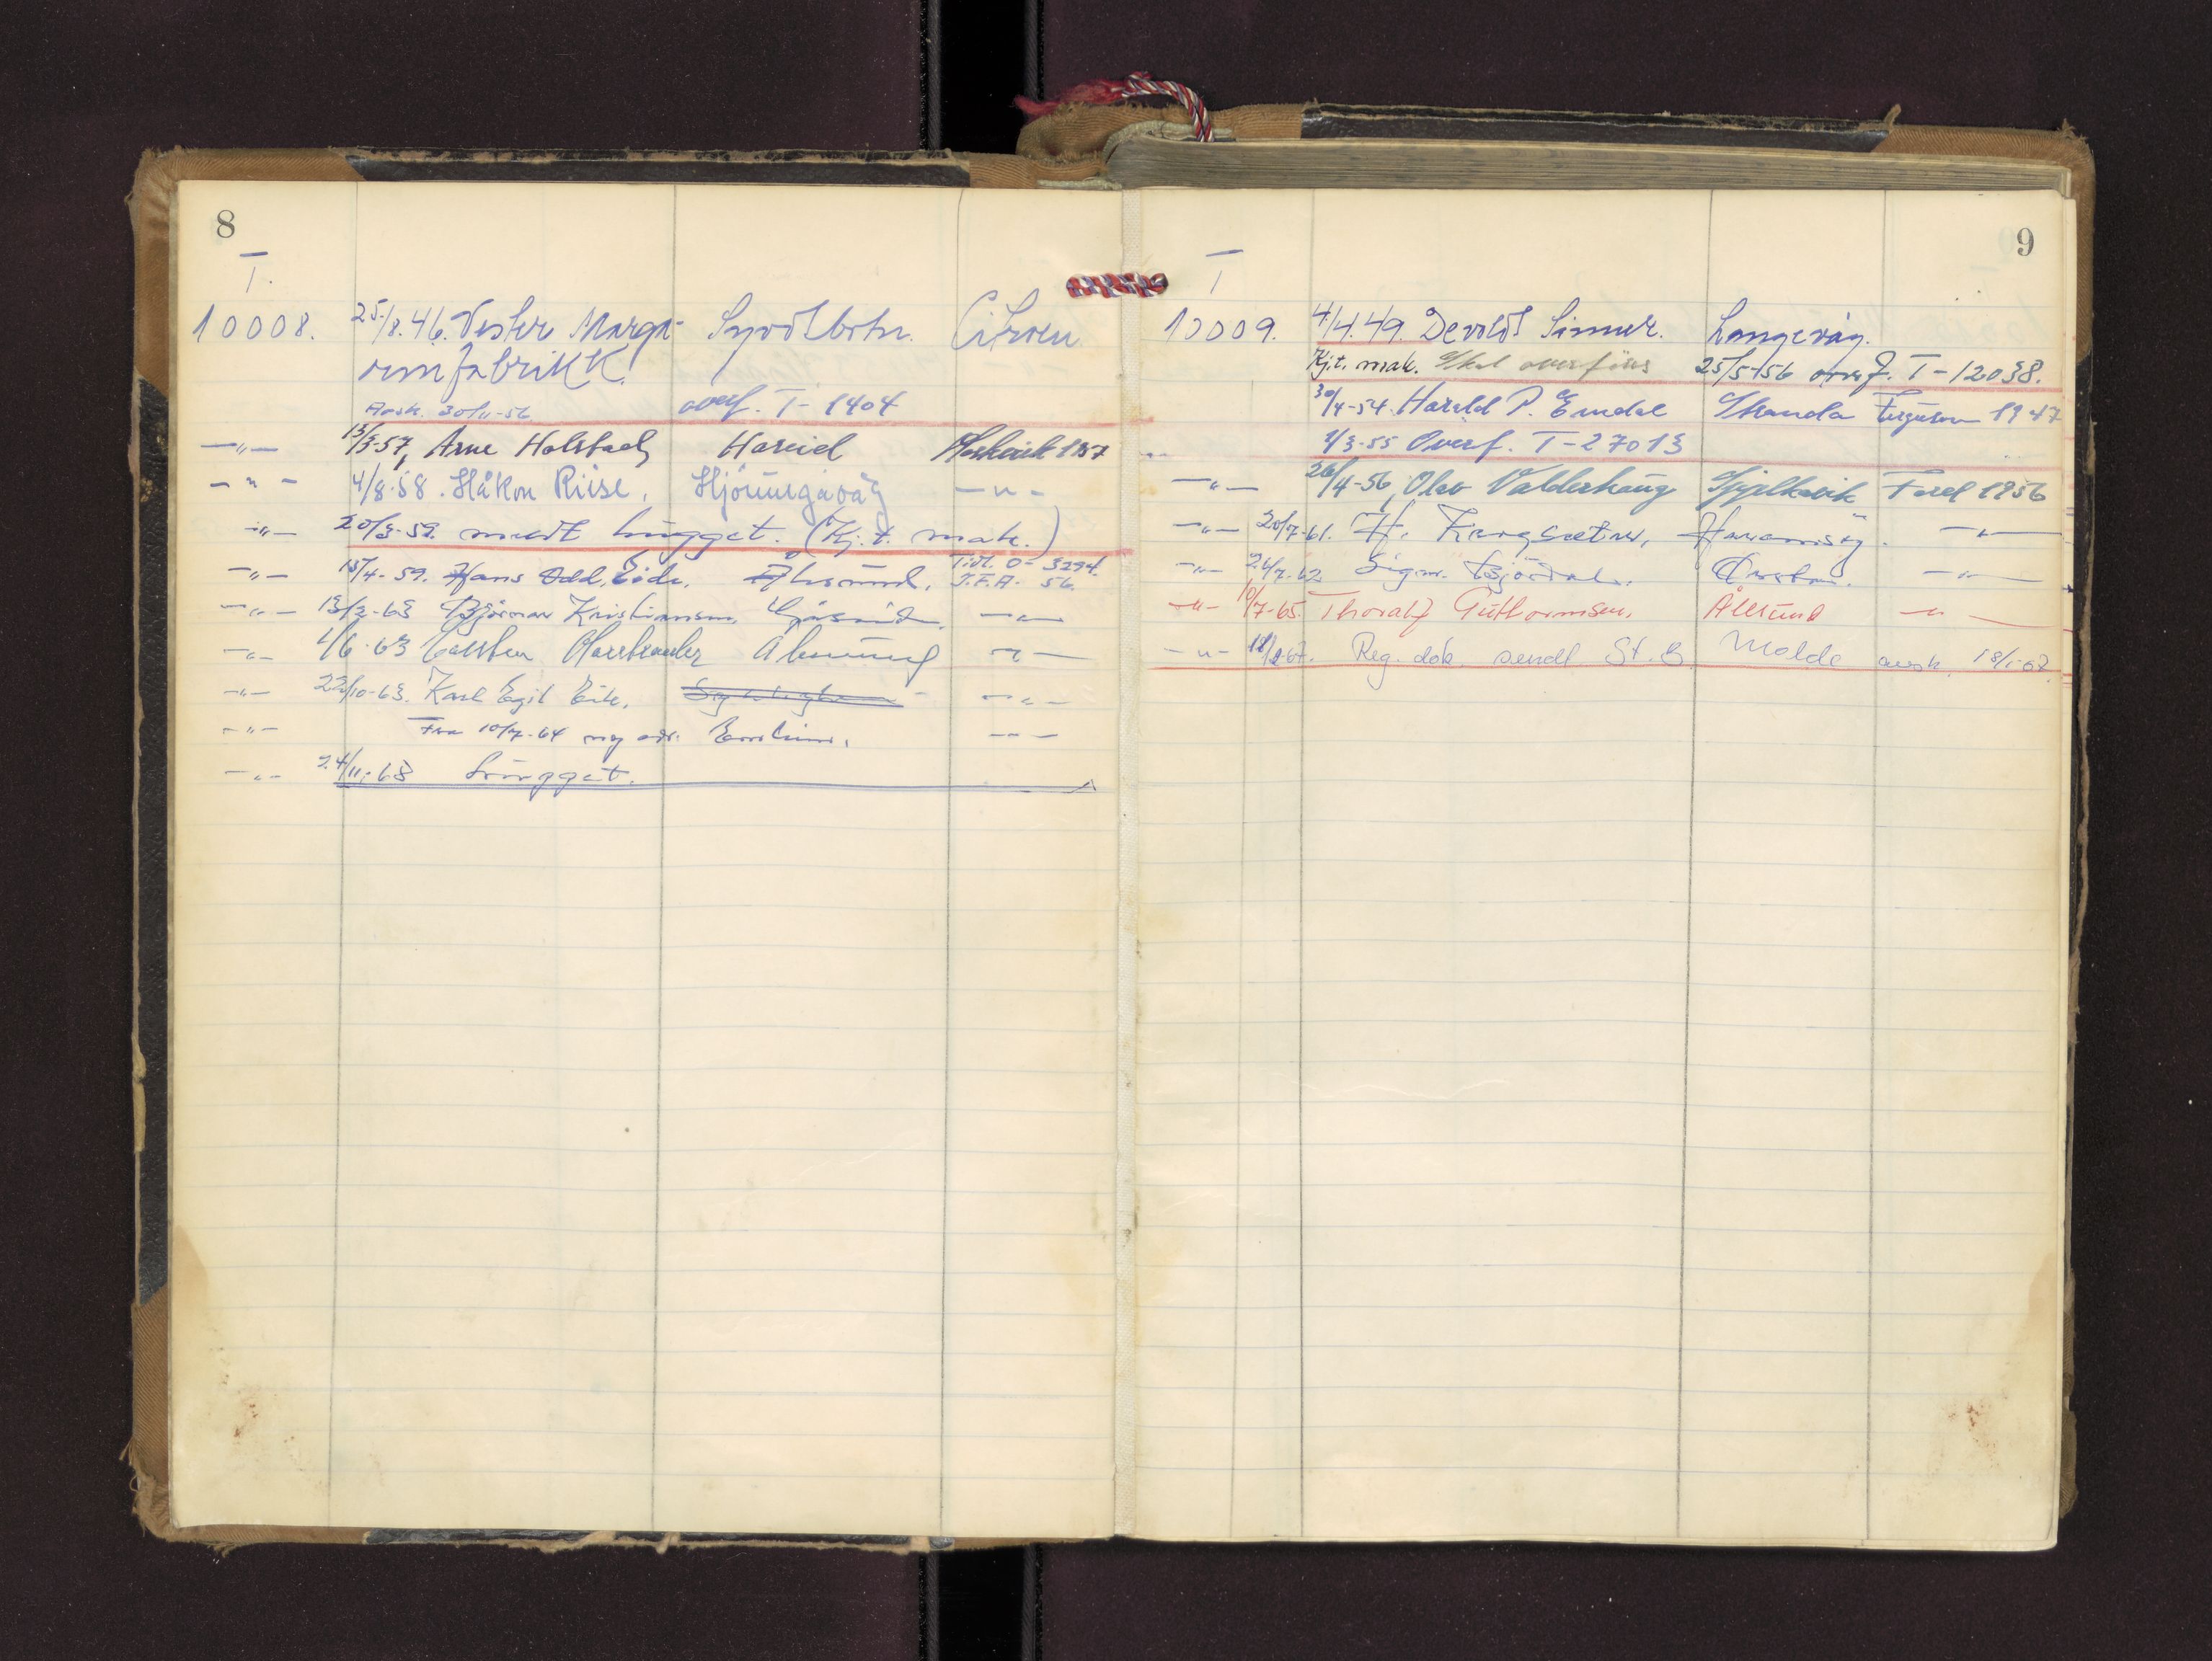 8
T.
10008. 25/8.46. Vestn. Marga- Syvdsbotn. Citroen
rinfabrikk.
Avsk. 30/11-56 overf. T-1404
—"— 13/3-57, Arne Holstad, Hareid Moskvich 1957
—"— 4/8.58. Håkon Riise, Hjørungavåg —"—
—"— 20/3-59. meldt hugget. (Kj.t. mak.)
—"— 15/4-59. Hans Odd Eide, Ålesund. Tidl. O-3294.
T.F.A. 56.
—"— 13/2-63 Bjørnar Kristiansen, —"—
—"— 1/6.63 Ålesund —"—
—"— 22/10-63. Karl Egil Eik, —"—
—"— Fra 10/7-64 ny adr. —"—
—"— 24/11-68 hugget.
9
T
10009. 4/4.49. Devold Sinmek. Langevåg.
Kj.t. mak. Skal overføres 25/5-56 overf. T-12038.
30/4-54. Harald P. Emdal Stranda Ferguson 1947
1/3-55 Overf. T-27013
—"— 26/4-56, Olav Valderhaug Spjelkavik Ford 1956
—"— 20/7-61. H. Haramsøy. —"—
—"— Sigm. Bjørdal. Ørsta. —"—
—"— 10/7-65. Thoralf Guttormsen, Ålesund —"—
—"— Reg. dok. sendt St. B. Molde avsk. 18/1-67.